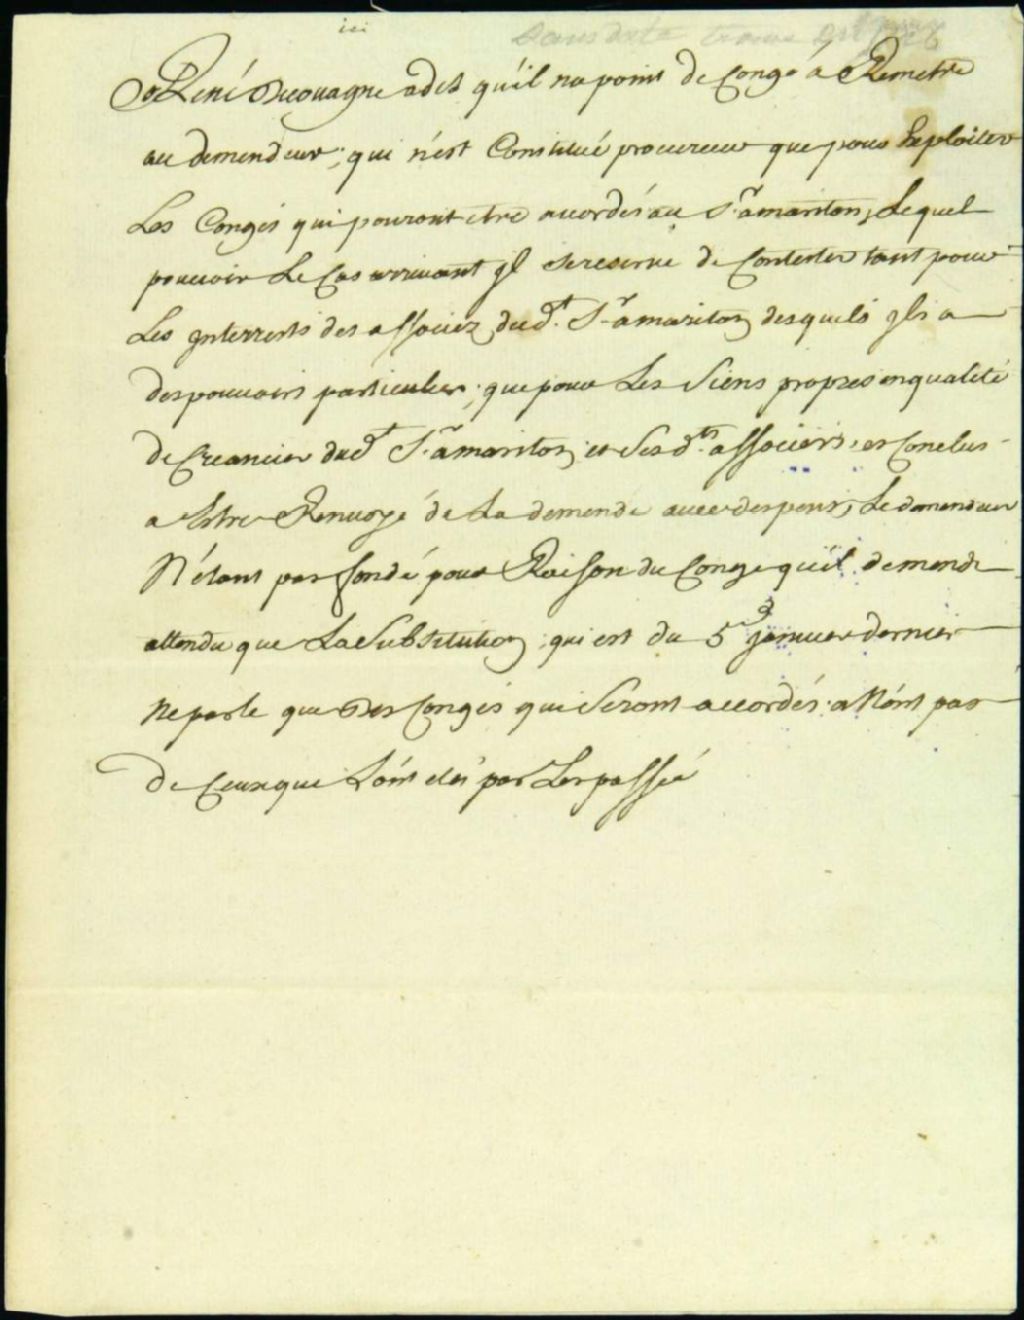 René Decouagne a dit qu'il na point de Congé á Remetre
au demendeur; qui n'est Constitué procureur que pour Exploiter
Les Congés qui pouront etre accordés au Sr. amariton, Lequel
pouvoir Le Cas arrivant jl se reserve de Contester tant pour
Les jnterrests des associez dud. Sr. amariton desquels jl a
des pouvoirs particulier, que pour Les Siens propres en qualité
de Creancier dud. Sr. amariton et Ses dts. associés, et Conclus
a Estre Renvoyé de La demende avec despens, Le demendeur
N'étant pas fondé pour Raison du Conge qu'il demende
attendu que La Substitution qui est du 5 janvier dernier
Ne parle que Des Congés qui Seront accordés. a Nont pas
de Ceux que L'ont etés par Le passée